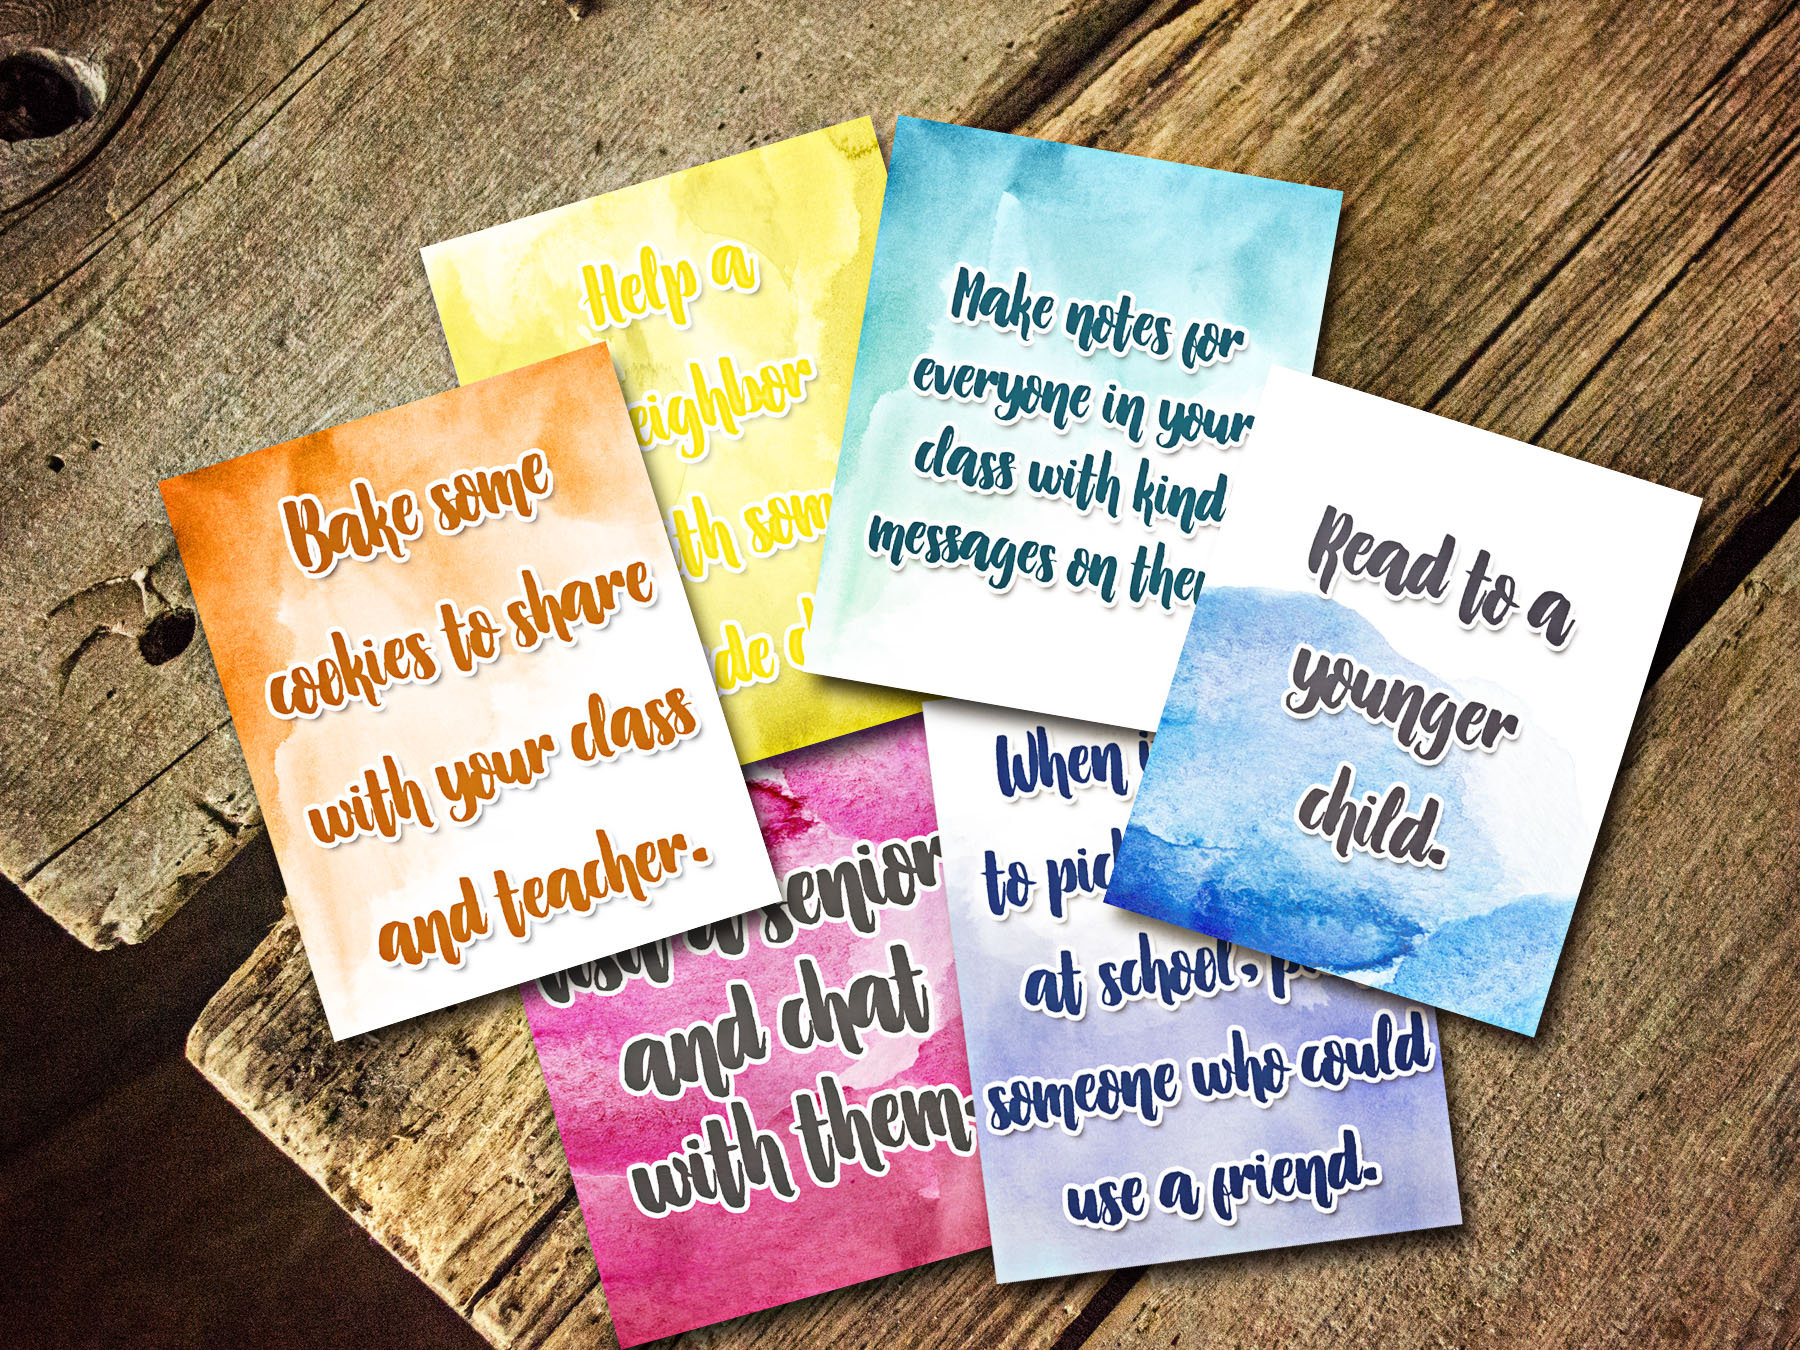 Help a
with some
Make notes for
everyone in your
class with kind
messages on them
Bake some
cookies to share
with your class
and teacher.
Read to a
younger
child.
a senior
and chat
with them.
When
to pick
at school,
someone who could
use a friend.